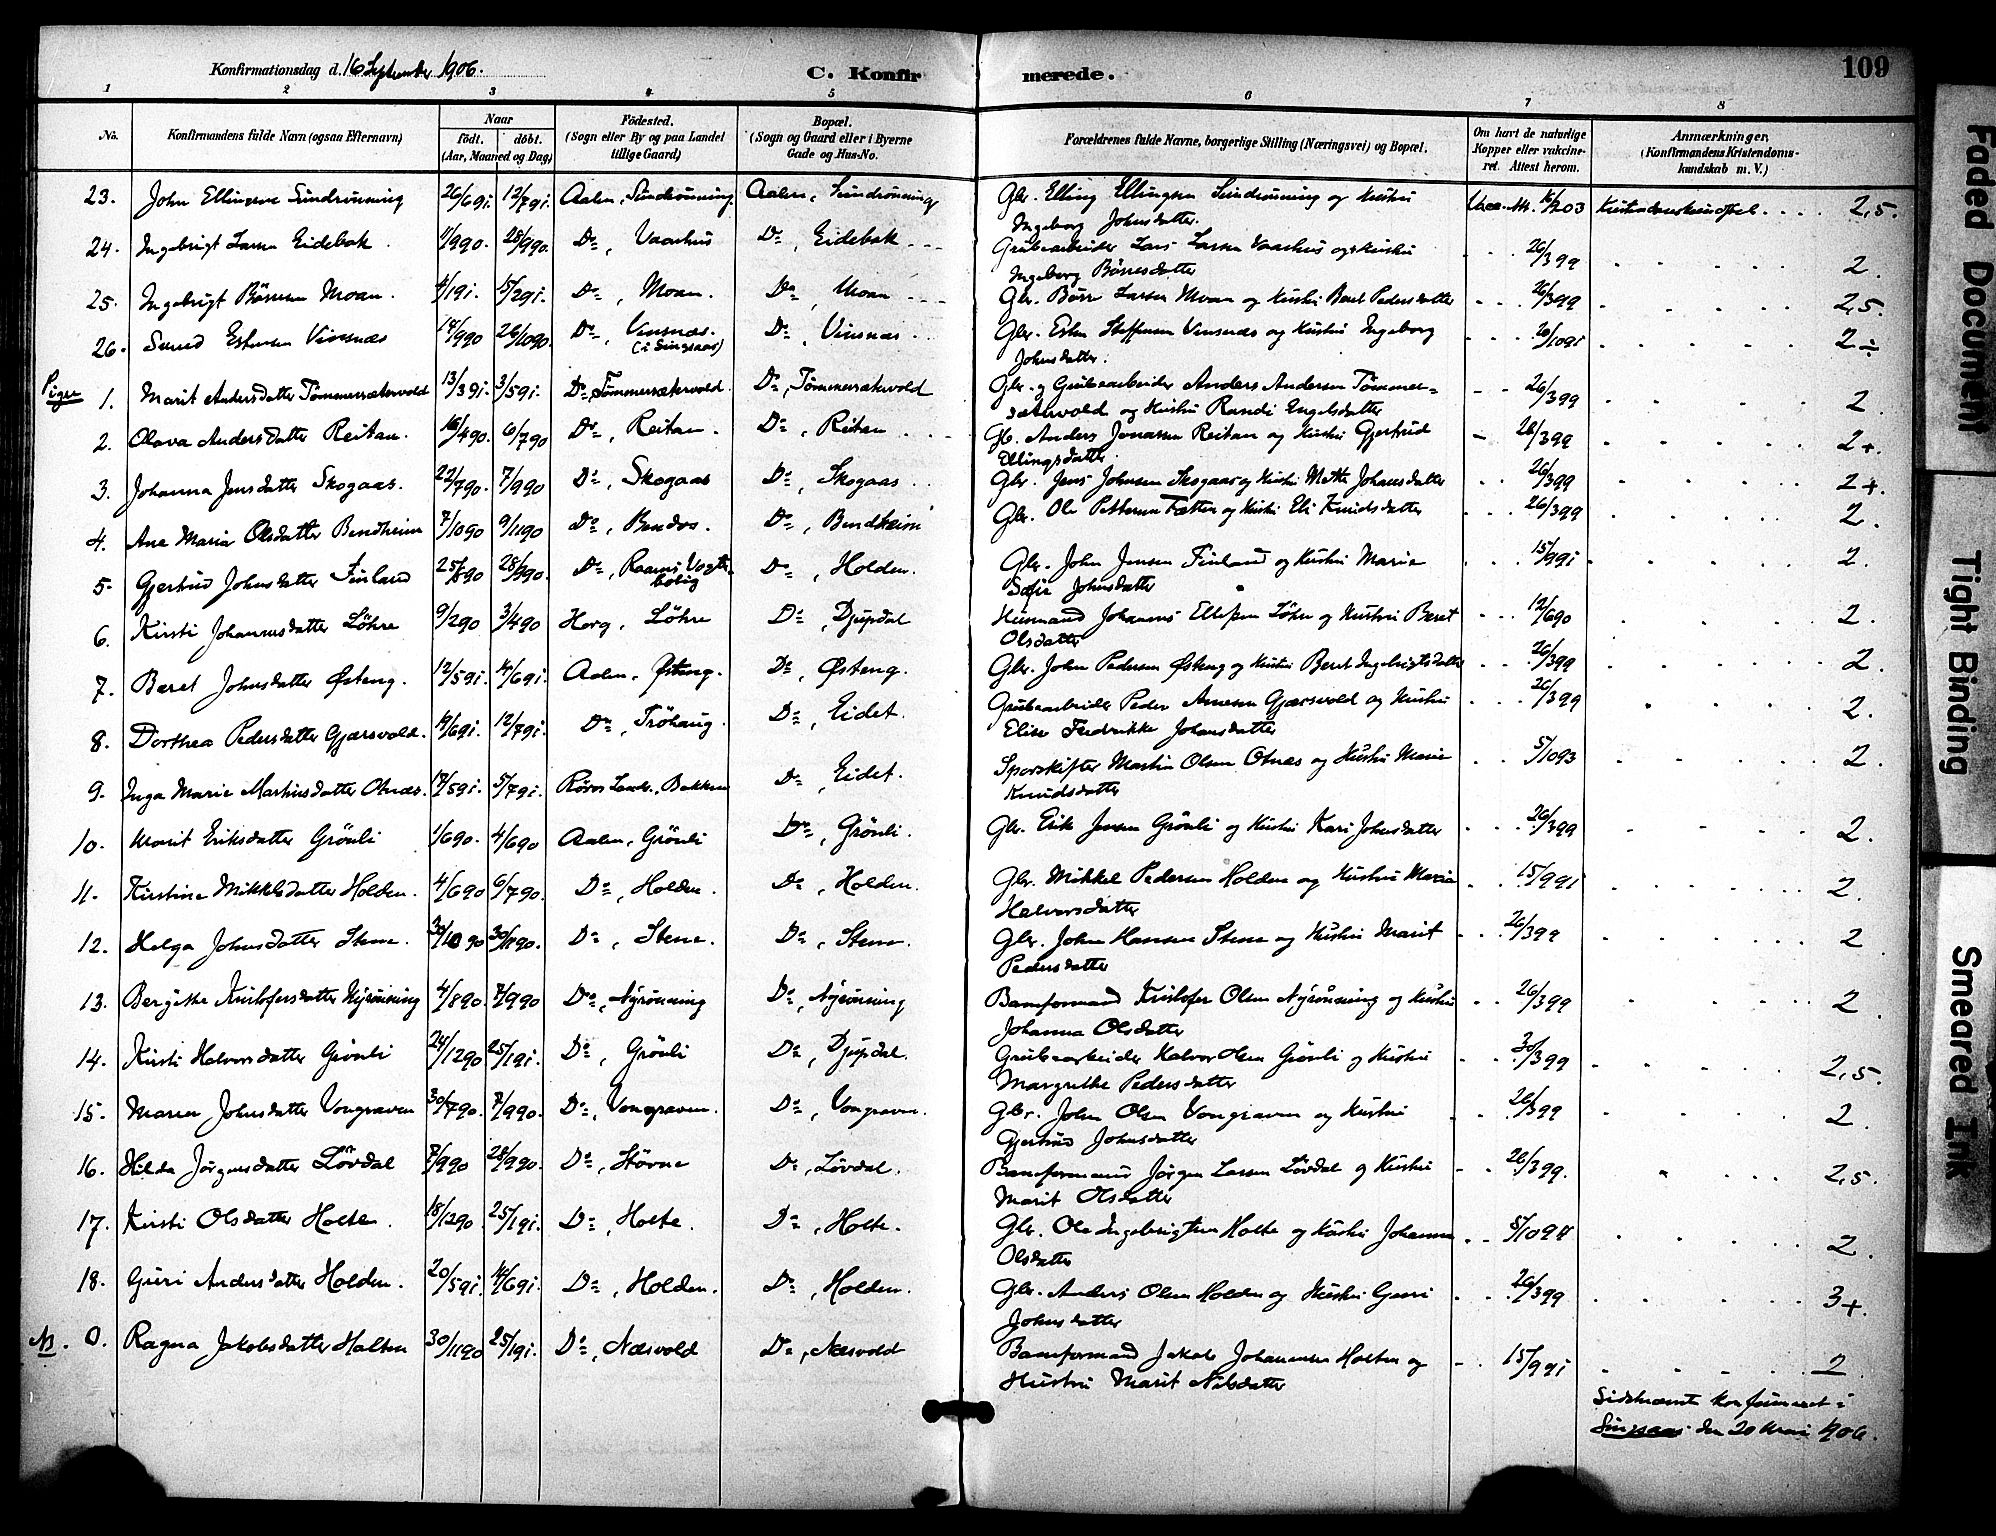 Konfirmationsdag d. 16 September 1906. C. Konfirmerede. 109
1 2 3 4 5 6 7 8
No. Konfirmandens fulde Navn (ogsaa Efternavn) Naar födt. döbt. (Aar, Maaned og Dag) Födested. (Sogn eller By og paa Landet tillige Gaard) Bopæl. (Sogn og Gaard eller i Byerne Gade og Hus-No. Forældrenes fulde Navne, borgerlige Stilling (Næringsvei) og Bopæl. Om havt de naturlige Kopper eller vakcineret. Attest herom. Anmærkninger, (Konfirmandens Kristendomskundskab m. V.)
23. John Ellingsen Sundrønning 26/6 91. 12/7 91. Aalen, Sundrønning Aalen, Sundrønning Gbr. Elling Ellingsen Sundrønning og Hustru Kristendomskundskab .... 2,5.
Ingeborg Johnsdatter.
24. Ingebrigt Larsen Eidebak 11/9 90. 28/9 90. Do, Vaarhus Do, Eidebak Grubearbeider Lars Larsen Vaarhus og Hustru 26/3 99 2.
Ingeborg Børresdatter
25. Ingebrigt Børresen Moan. 4/1 91. 15/2 91. Do, Moan. Do, Moan Gbr. Børre Larsen Moan og Hustru Beret Pedersdatter 26/3 99 2,5.
26. Estensen Vinsnæs 14/9 90 26/10 90. Do, Vinsnæs. (i Singsaas) Do, Vinsnæs Gbr. Esten Steffensen Vinsnæs og Hustru Ingeborg 2÷
Johnsdatter.
Piger 1. Marit Andersdatter Tömmersætervold 13/3 91. 3/5 91. Do, Tömmersætervold. Do, Tømmersætervold Gbr. og Grubearbeider Anders Andersen Tømmer- 26/3 99 2.
sætervold og Hustru Randi Engelsdatter
2. Olava Andersdatter Reitan. 16/4 90. 6/7 90 Do, Reitan. Do, Reitan Gb. Anders Jonassen Reitan og Hustru Gjertrud 26/3 99 2+.
Ellingsdatter
3. Johanna Jensdatter Skogaas. 22/7 90. 7/9 90 Do, Skogaas Do, Skogaas Gbr. Jens Johnsen Skogaas og Hustru Mette Johansdatter 26/3 99 2+.
4. Ane Maria Olsdatter Bendheim 7/10 90 9/11 90 Do, Bendos. Do, Bendheim Gbr. Ole Pettersen Tætten og Hustru Eli Knudsdatter 26/3 99 2.
5. Gjertrud Johnsdatter Finland 25/8 90 28/9 90. Do, Raaens Vogterbolig Do, Holden. Gbr. John Jensen Finland og Hustru Marie 15/9 91 2.
Sofie Johnsdatter
6. Kirsti Johannesdatter Löhre 9/2 90 3/4 90 Horg, Löhre Do, Djupdal Husmand Johannes Ellefsen Löhre og Hustru Beret 12/6 90 2.
Olsdatter
7. Beret Johnsdatter Østeng. 12/5 91. 14/6 91. Aalen, Østeng. Do, Østeng. Gbr. John Pedersen Østeng og Hustru Beret Ingebrigtsdatter 26/3 99 2.
8. Dorthea Pedersdatter Gjærsvold. 14/6 91. 12/7 91. Do, Tröhaug Do, Eidet. Grubearbeider Peder Arnesen Gjærsvold og Hustru 26/3 99 2.
Elise Fredrikke Johansdatter
9. Inga Marie Martinsdatter Otnæs. 17/5 91. 5/7 91. Røros Lands., Bakken Do, Eidet. Sporskifter Martin Olsen Otnæs og Hustru Marie 5/10 93 2.
Knudsdatter
10. Marit Eriksdatter Grönli 1/6 90. 4/6 90 Aalen, Grönli Do, Grönli. Gbr. Erik Jensen Grönli og Hustru Kari Johnsdatter 26/3 99 2.
11. Kirstine Mikkelsdatter Holden. 4/6 90 6/7 90. Do, Holden. Do, Holden. Gbr. Mikkel Pedersen Holden og Hustru Maria 15/9 91 2.
Halvorsdatter
12. Helga Johnsdatter Stene. 30/10 90 30/11 90. Do, Stene. Do, Stene. Gbr. John Hansen Stene og Hustru Marit 26/3 99 2
Pedersdatter
13. Bergitte Kristofersdatter Nyrønning 4/8 90. 7/9 90 Do, Nyrønning Do, Nyrønning Baneformand Kristofer Olsen Nyrønning og Hustru 26/3 99 2.
Johanna Olsdatter
14. Kirsti Halvorsdatter Grönli 24/12 90 25/1 91. Do, Grönli Do, Djupdal. Grubearbeider Halvor Olsen Grönli og Hustru 30/3 99 2,5.
Margrethe Pedersdatter
15. Maren Johnsdatter Vongraven 30/7 90. 7/9 90. Do, Vongraven. Do, Vongraven. Gbr. John Olsen Vongraven og Hustru 26/3 99 2.
Gjertrud Johnsdatter
16. Hilda Jörgensdatter Lövdal 7/9 90 28/9 90. Do, Störne Do, Lövdal. Baneformand Jörgen Larsen Lövdal og Hustru 26/3 99. 2,5.
Marit Olsdatter
17. Kirsti Olsdatter Holte. 18/12 90. 25/1 91. Do, Holte. Do, Holte. Gbr. Ole Ingebrigtsen Holte og Hustru Johanna 5/10 94 2.
Olsdatter
18. Guri Andersdatter Holden. 20/5 91. 14/6 91. Do, Holden. Do, Holden. Gbr. Anders Olsen Holden og Hustru Guri 26/3 99 3+.
Johnsdatter
NB. 0. Ragna Jakobsdatter Halten 30/11 90 25/1 91. Do, Næsvold Do, Næsvold Baneformand Jakob Johannesen Halten og 15/9 91 2.
Hustru Marit Nilsdatter
Sidstnævnte konfirmeret i
Singsaas den 20 Mai 1906.
Faded Document
Tight Binding
Smeared Ink